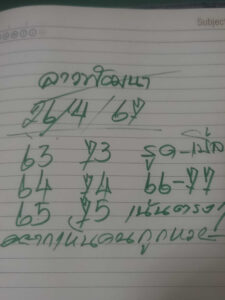 Subject
ลาวพัฒนา
26/4/67
63 73 รูด-เบิ้ล
64 74 66-77
65 75 เน้นตรงๆ
อยากเห็นคนถูกหวย